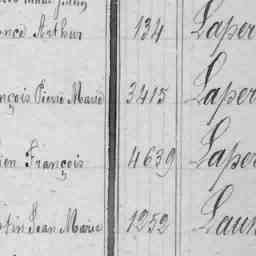 Arthur 134 Laper
Pierre Marie 3415 Laper
François 4639 Laper
Jean Marie 1252 Laun